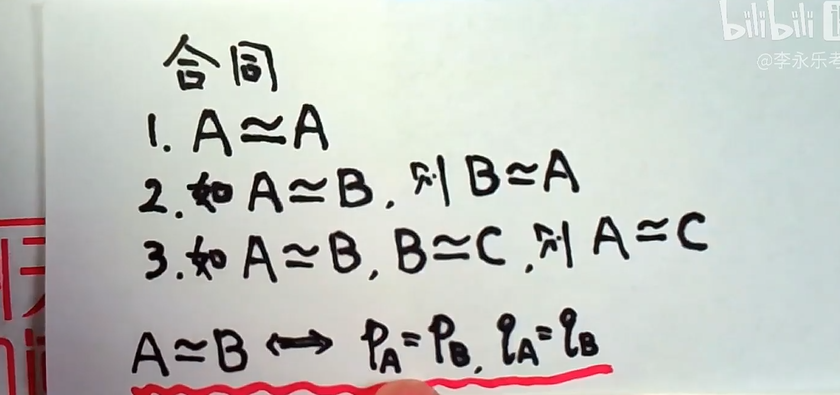 bilibili
@李永乐考
合同
1. A≃A
2. 如 A≃B, 则 B≃A
3. 如 A≃B, B≃C, 则 A≃C
A≃B ↔ PA=PB, qA=qB